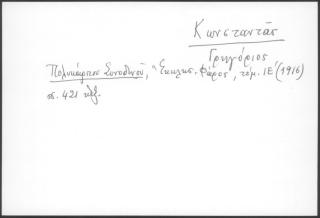 Κωνσταντᾶς
Γρηγόριος
Πολυκάρπου Συνοδινοῦ, "Ἐκκλησ. Φάρος, τόμ. ΙΕ' (1916)
σ. 421 κἑξ.